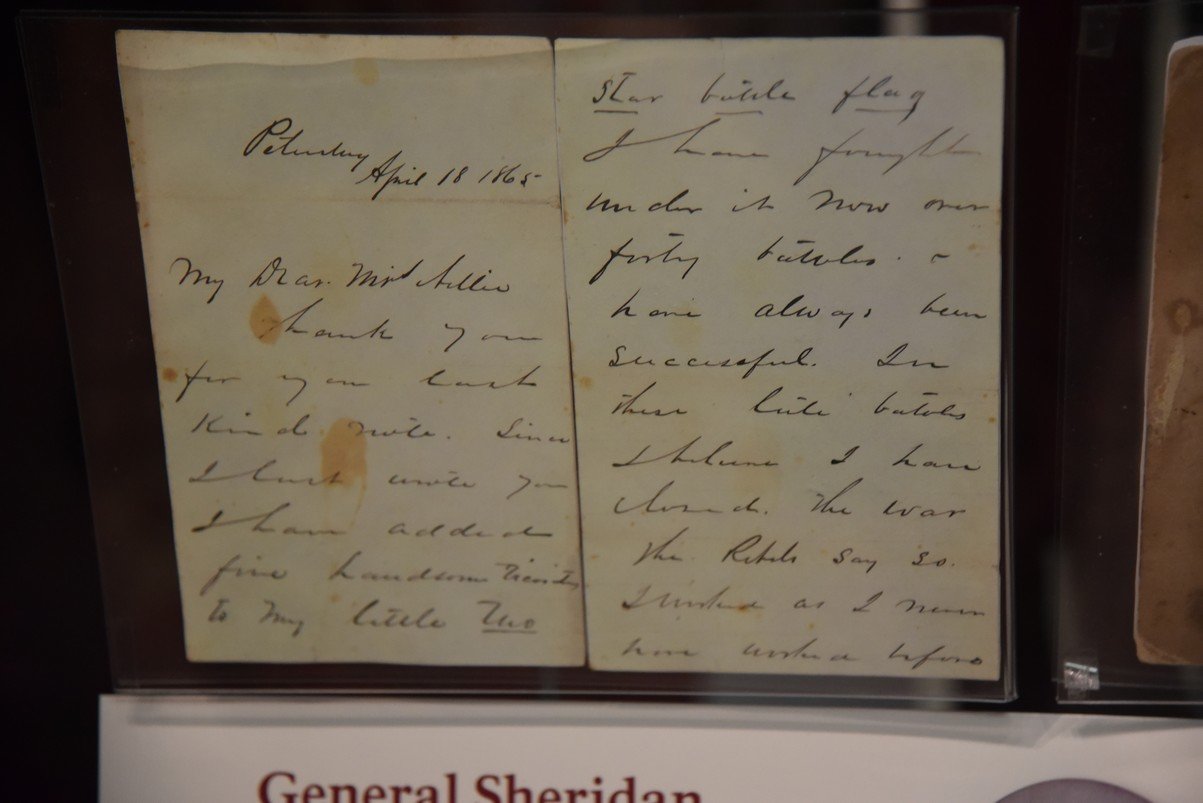 Petersburg
April 18 1865
My Dear Miss Nellie
Thank you
for your last
Kind note. Since
I last wrote you
I have added
five handsome Victories
to my little Two
Star battle flag
I have fought
under it now over
forty battles. &
have always been
successful. In
these late battles
I believe I have
closed. The war
The. Rebels say so.
I worked as I never
have worked before
General Sheridan